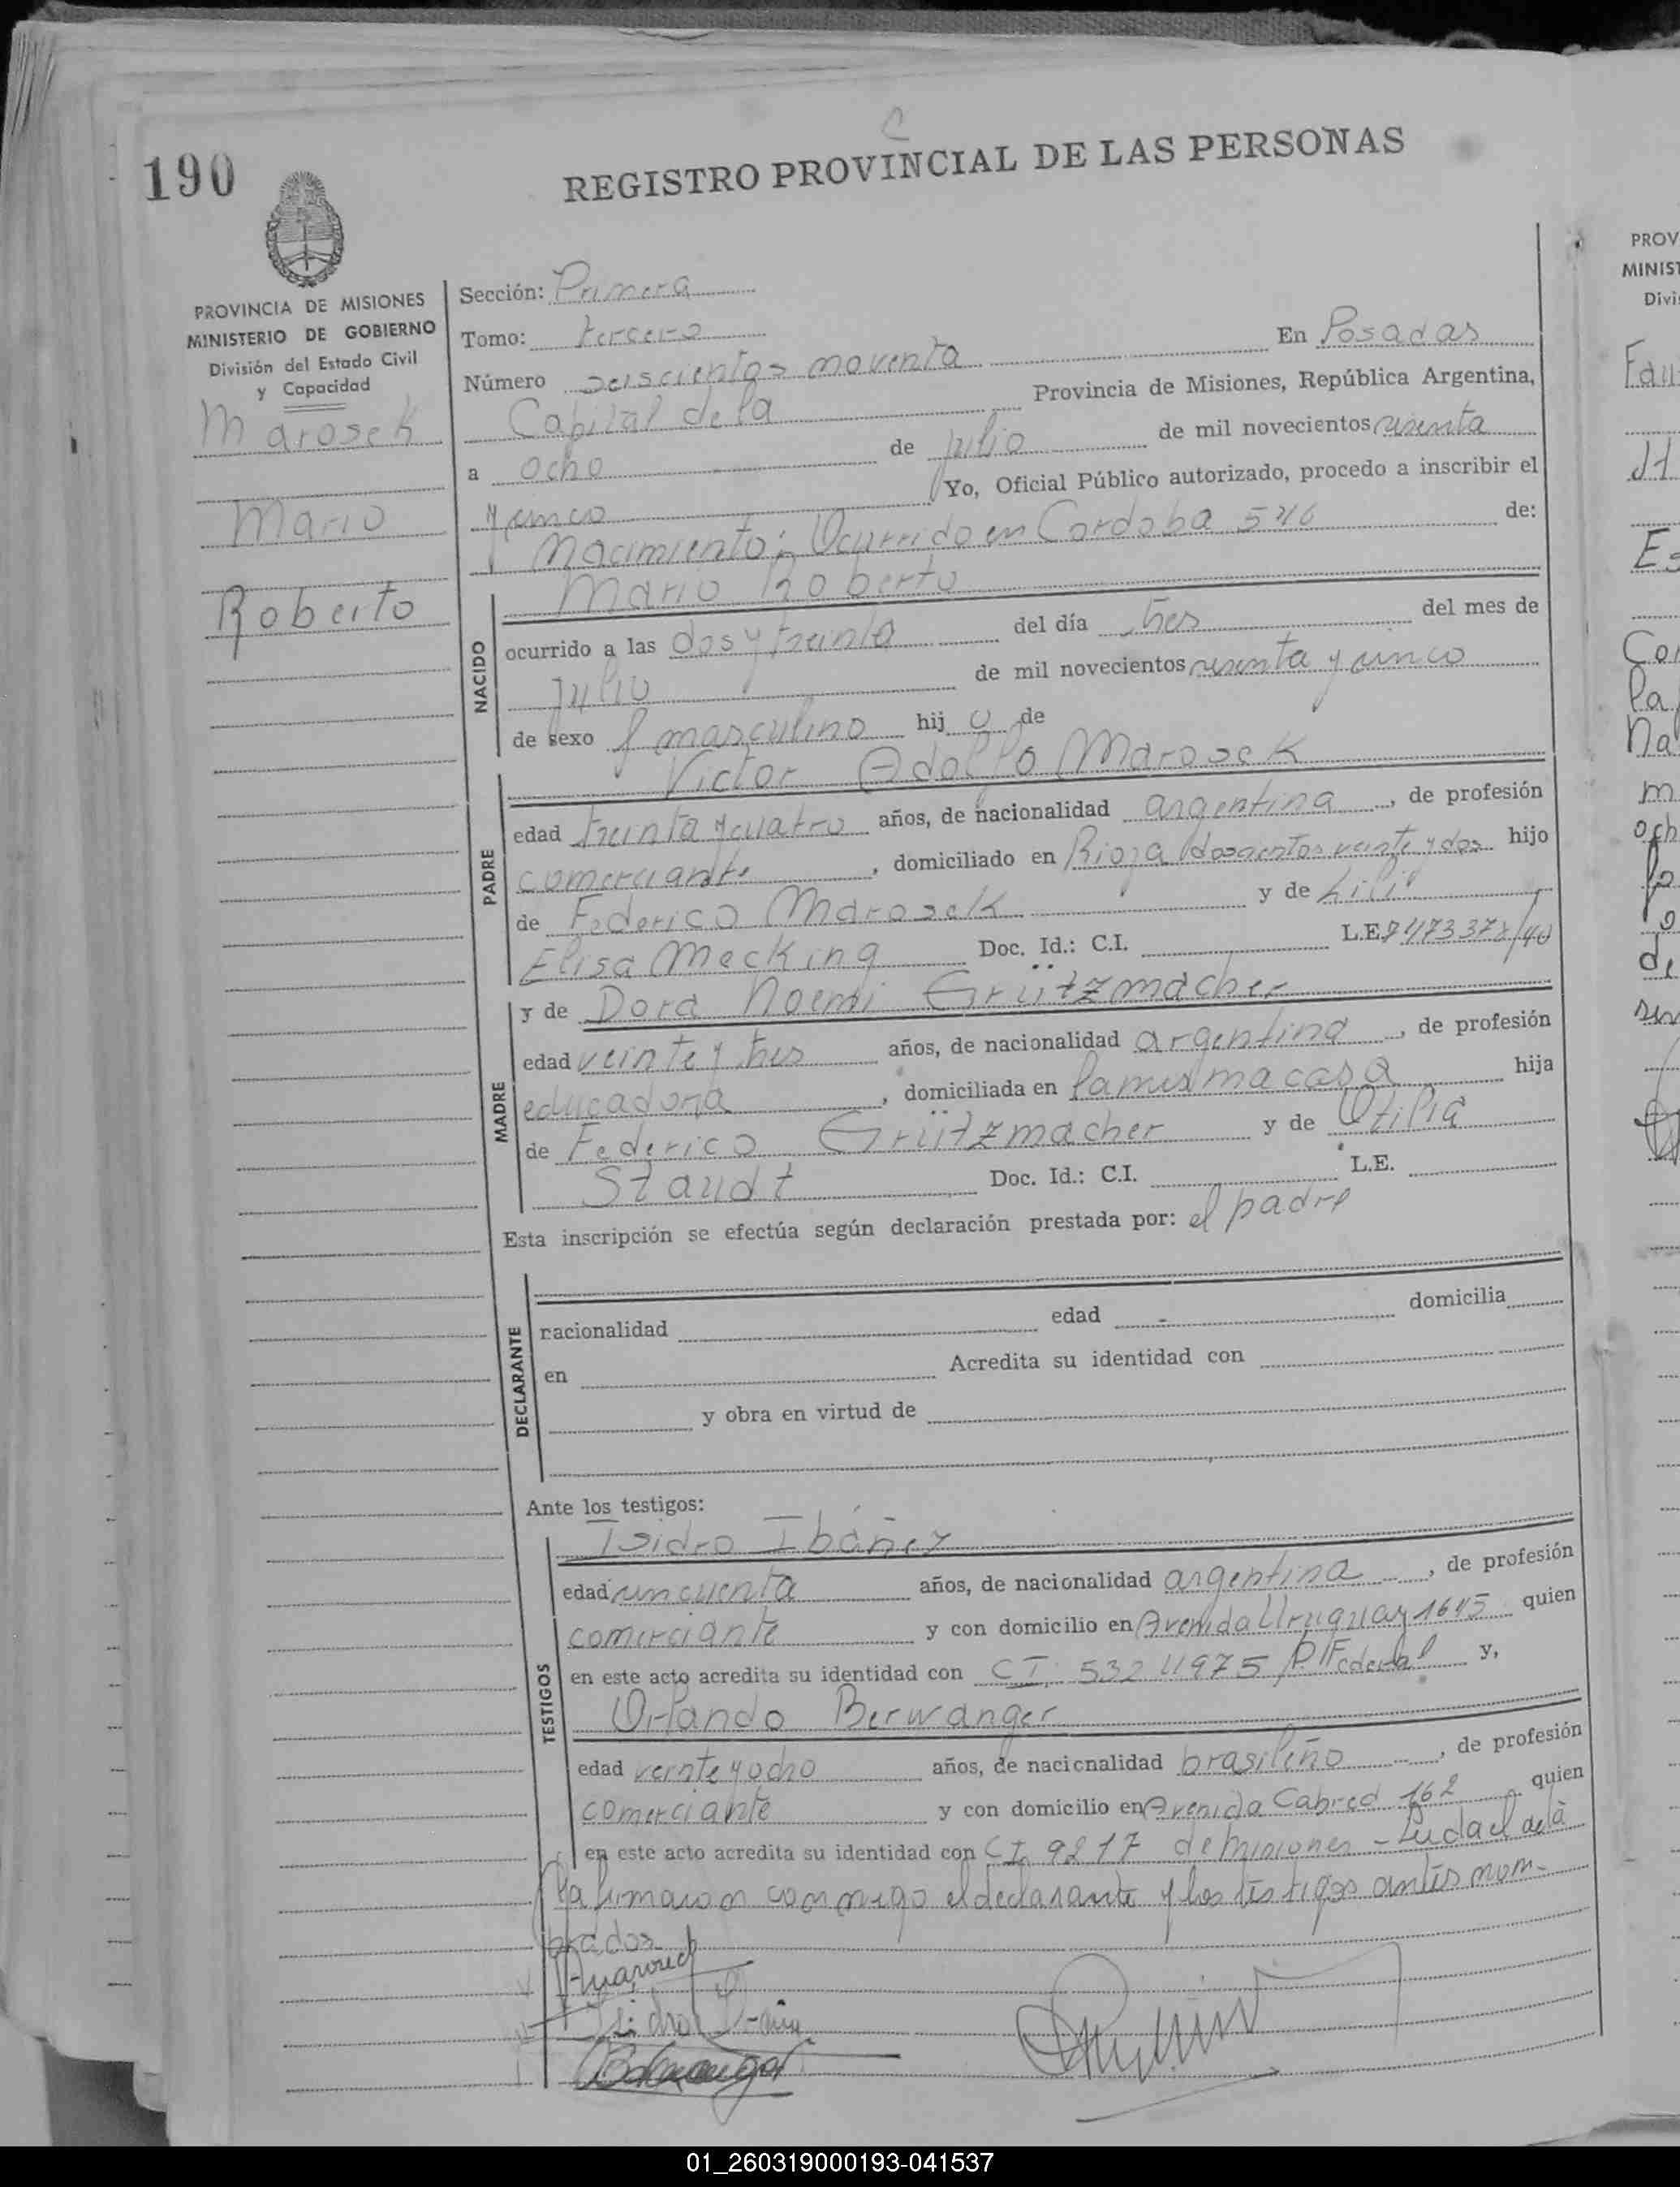 190
REGISTRO PROVINCIAL DE LAS PERSONAS
PROVINCIA DE MISIONES
MINISTERIO DE GOBIERNO
División del Estado Civil
y Capacidad
Marosek
Mario
Roberto
Sección: Primera
Tomo: tercero
Número seiscientos noventa En Posadas
Capital de la Provincia de Misiones, República Argentina,
a ocho de julio de mil novecientos sesenta
y cinco Yo, Oficial Público autorizado, procedo a inscribir el
Nacimiento; Ocurrido en Cordoba 546 de:
NACIDO
Mario Roberto
ocurrido a las dos y treinta del día tres del mes de
Julio de mil novecientos sesenta y cinco
de sexo masculino hijo de
PADRE
Victor Adolfo Marosek
edad treinta y cuatro años, de nacionalidad argentina, de profesión
comerciante, domiciliado en Rioja doscientos veinte y dos hijo
de Federico Marosek y de Lili
Elisa Mecking Doc. Id.: C.I. L.E. 7473372/40
MADRE
y de Dora Noemi Grützmacher
edad veinte y tres años, de nacionalidad argentina, de profesión
educadora, domiciliada en la misma casa hija
de Federico Grützmacher y de Otilia
Staudt Doc. Id.: C.I. L.E.
Esta inscripción se efectúa según declaración prestada por: el padre
DECLARANTE
nacionalidad edad domicilia
en Acredita su identidad con
y obra en virtud de
Ante los testigos:
TESTIGOS
Isidro Ibáñez
edad cincuenta años, de nacionalidad argentina, de profesión
comerciante y con domicilio en Avenida Uruguay 1645 quien
en este acto acredita su identidad con CI. 5324975 P. Federal y,
Orlando Berwanger
edad veinte y ocho años, de nacionalidad brasileño, de profesión
comerciante y con domicilio en Avenida Cabred 162 quien
en este acto acredita su identidad con CI. 9217 de Misiones - Leida el acta
la firmaron conmigo el declarante y los testigos antes nom-
brados
PROV
MINIST
Divi
01_260319000193-041537